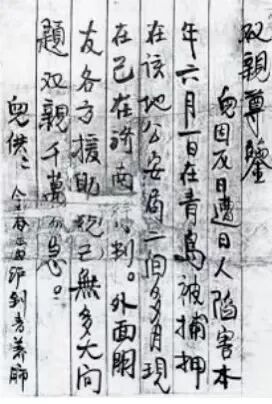 双親尊鑒
兒因反日遭日人陷害本
年六月一日在青島被捕押
在該地公安局二個多月現
在已在濟南判。外面朋
友各方援助已無多大问
題双親千萬勿急。
兒 到青